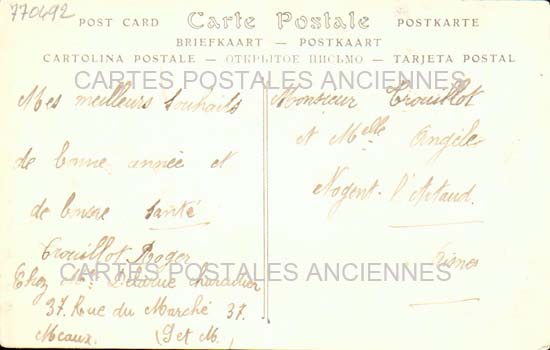 770492
POST CARD Carte Postale POSTKARTE
BRIEFKAART — POSTKAART
CARTOLINA POSTALE — ОТКРЫТОЕ ПИСЬМО — TARJETA POSTAL
CARTES POSTALES ANCIENNES
Mes meilleurs souhaits
de bonne année et
de bonne santé
Trouillot Roger
Chez Mr Delarue charcutier
37. Rue du Marché 37.
Meaux. (S et M.)
Monsieur Trouillot
et Melle Angèle
Nogent. l'Artaud.
Aisne
CARTES POSTALES ANCIENNES